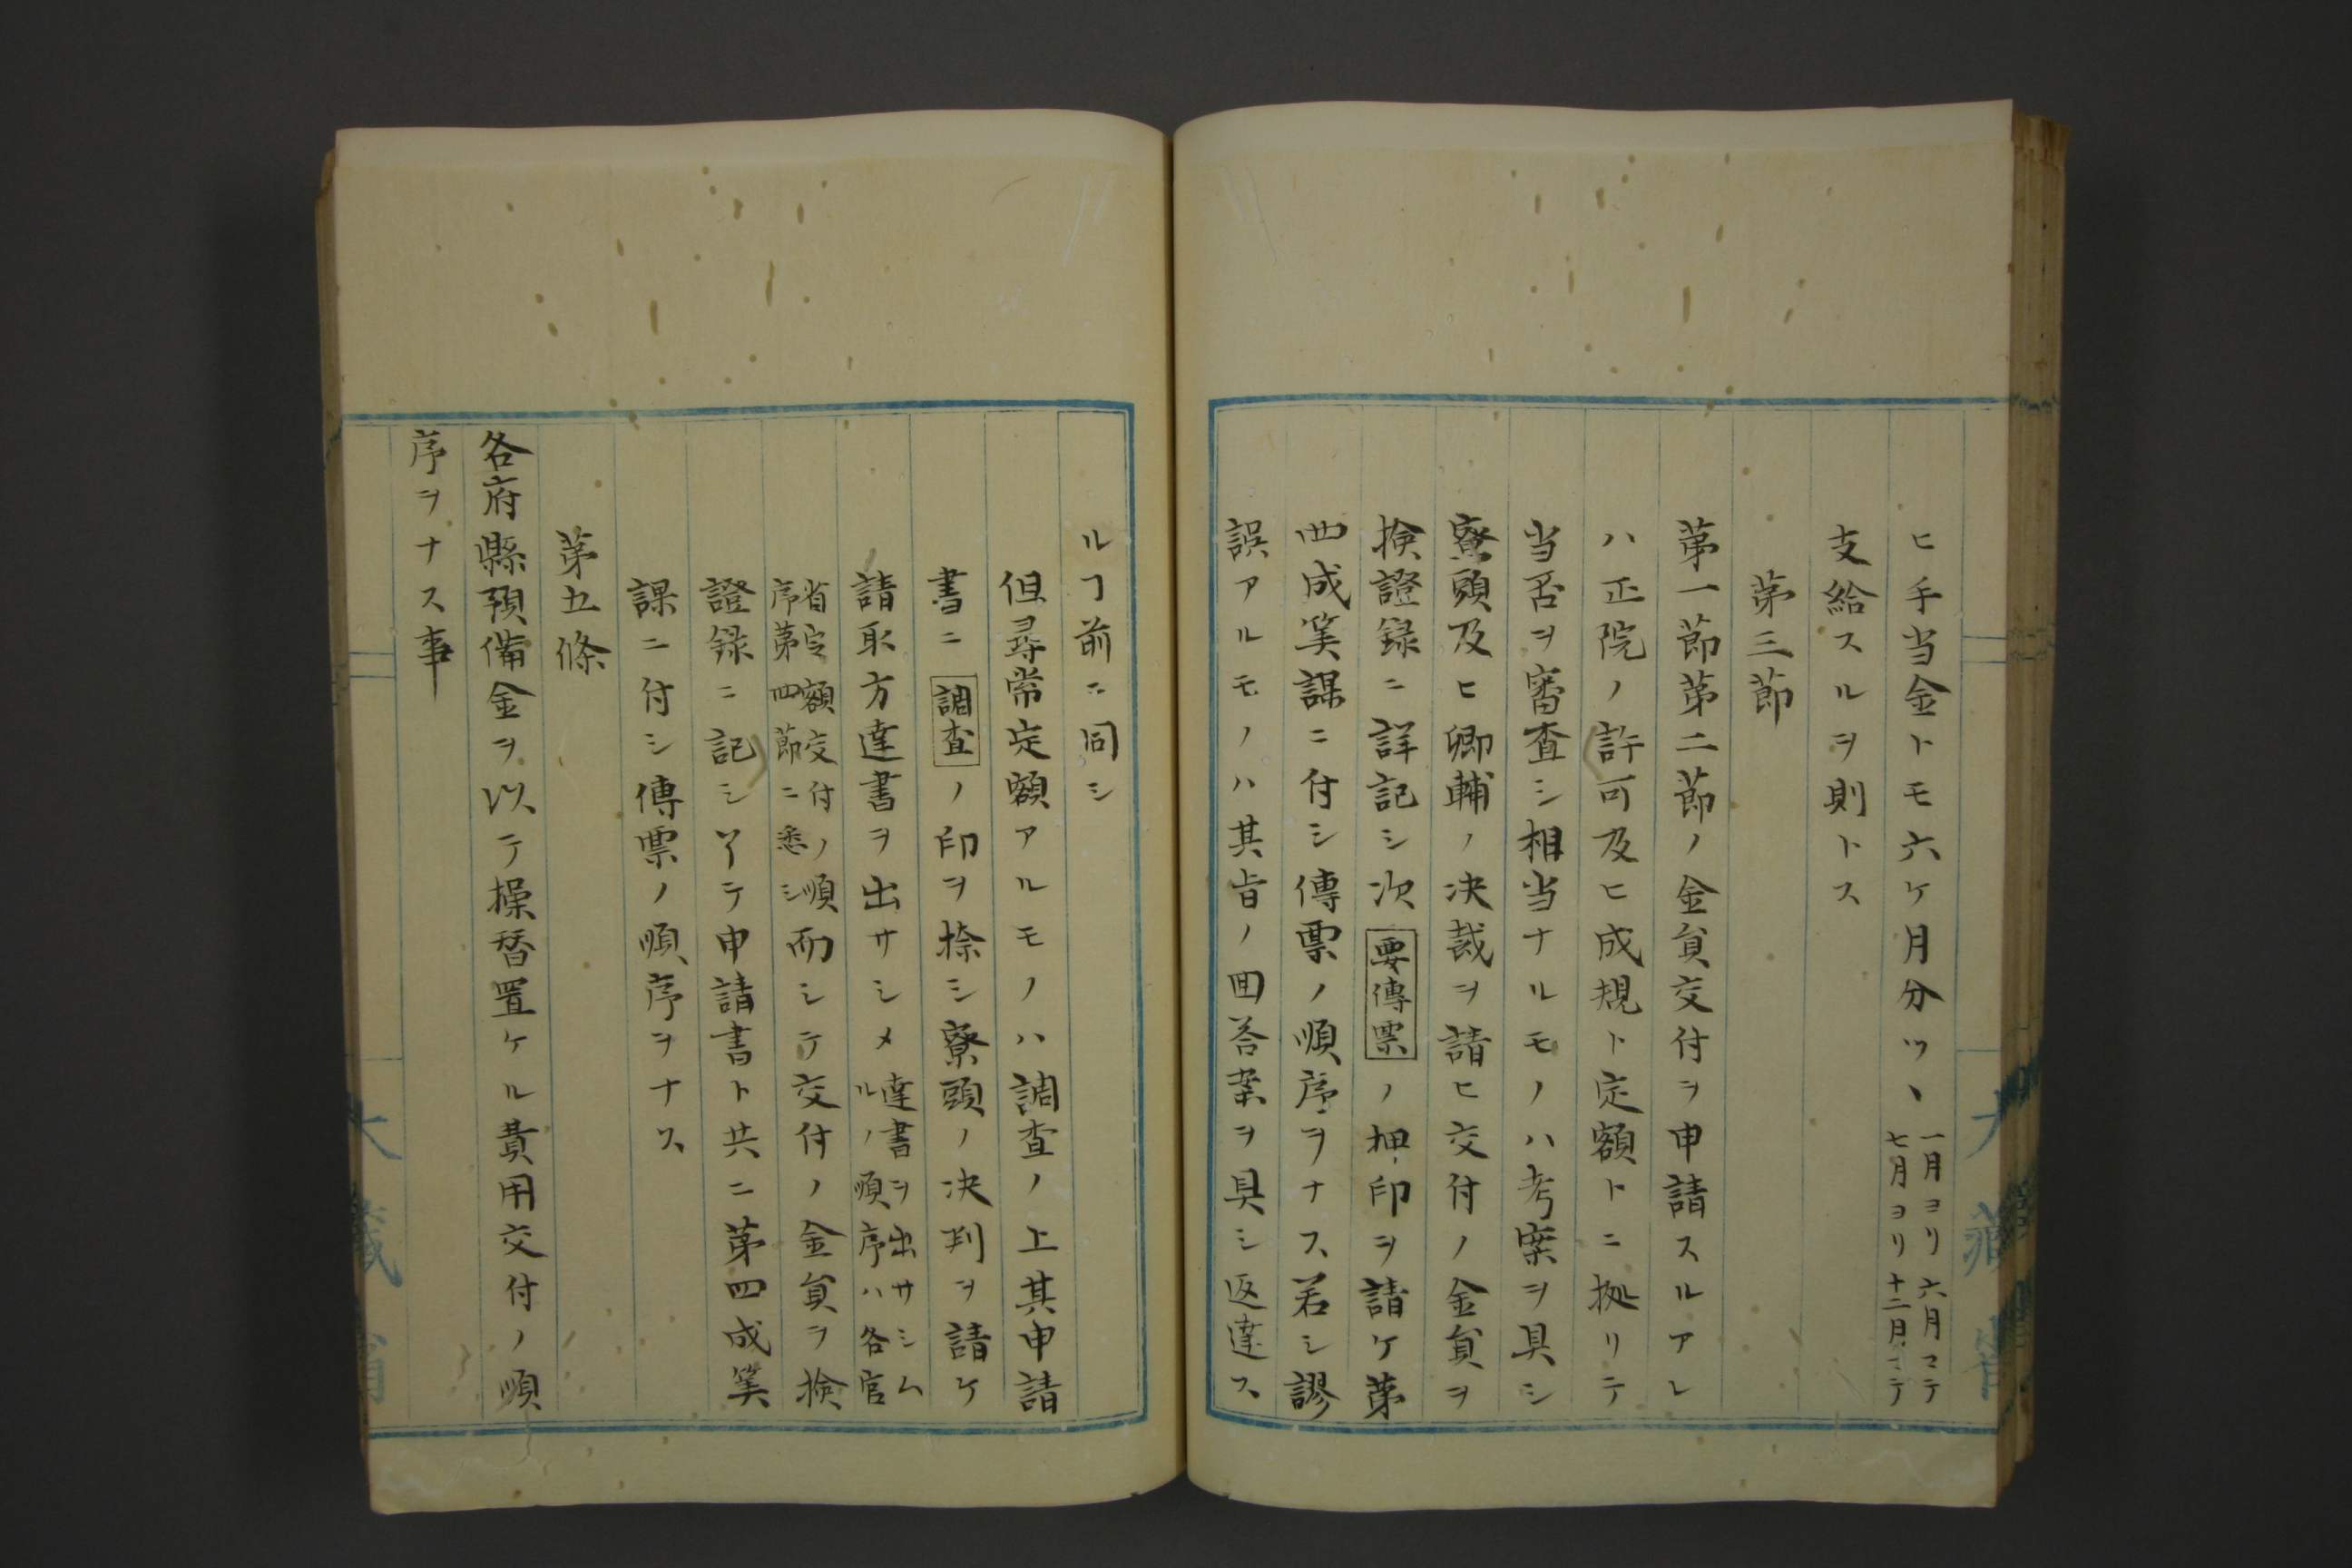 ヒ手当金トモ六ケ月分ツヽ一月ヨリ六月マテ七月ヨリ十二月マテ
支給スルヲ則トス
第三節
第一節第二節ノ金員交付ヲ申請スルアレ
ハ正院ノ許可及ヒ成規ト定額トニ拠リテ
当否ヲ審査シ相当ナルモノハ考案ヲ具シ
寮頭及ヒ卿輔ノ决裁ヲ請ヒ交付ノ金員ヲ
検證録ニ詳記シ次要傳票ノ押印ヲ請ケ第
四成筭課ニ付シ傳票ノ順序ヲナス若シ謬
誤アルモノハ其旨ノ回答案ヲ具シ返達ス
ルヿ前ニ同シ
但尋常定額アルモノハ調査ノ上其申請
書ニ調査ノ印ヲ捺シ寮頭ノ决判ヲ請ケ
請取方達書ヲ出サシメ達書ヲ出サシムルノ順序ハ各官
省定額交付ノ順序第四節ニ悉シ而シテ交付ノ金員ヲ検
證録ニ記シ了テ申請書ト共ニ第四成筭
課ニ付シ傳票ノ順序ヲナス
第五條
各府縣預備金ヲ以テ操替置ケル費用交付ノ順
序ヲナス事
大藏省
大藏省